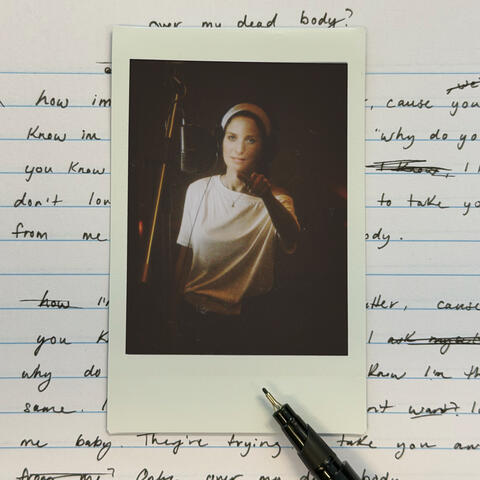 over my dead body?
how im , cause you
Know im "why do yo
you know I know, I
don't lou to take yo
from me ody.
how I' tter, cause
you K I ask myse
why do Know I'm th
same. I n't want? lo
me baby. They're trying take you aw
from me? Only over my d body